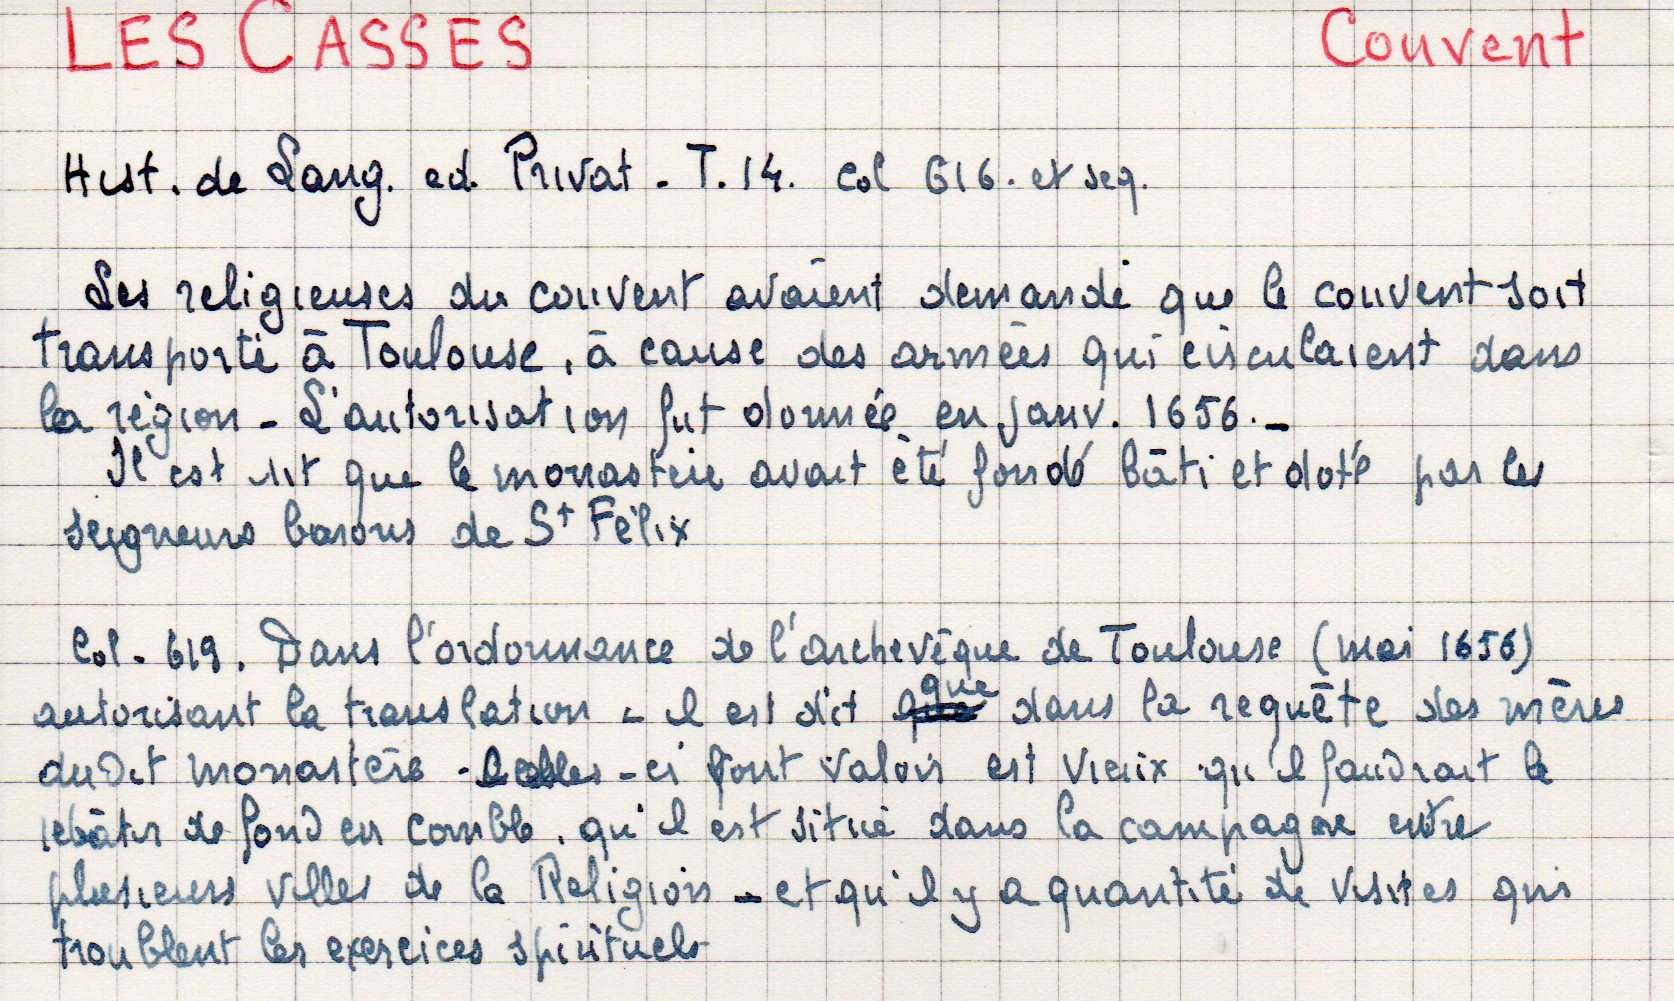 LES CASSES Couvent
Hist. de Lang. ed. Privat - T. 14. Col 616. et seq.
Les religieuses du couvent avaient demandé que le couvent soit
transporté à Toulouse, à cause des armées qui circulaient dans
la région - L'autorisation fut donnée en janv. 1656. -
Il est dit que le monastère avait été fondé bâti et doté par les
seigneurs barons de St Félix
Col. 619. Dans l'ordonnance de l'archevêque de Toulouse (mai 1656)
autorisant la translation - il est dit que dans la requête des mères
dudit monastère - celles-ci font valoir est vieux qu'il faudrait le
rebâtir de fond en comble, qu'il est situé dans la campagne entre
plusieurs villes de la Religion - et qu'il y a quantité de visites qui
troublent les exercices spirituels